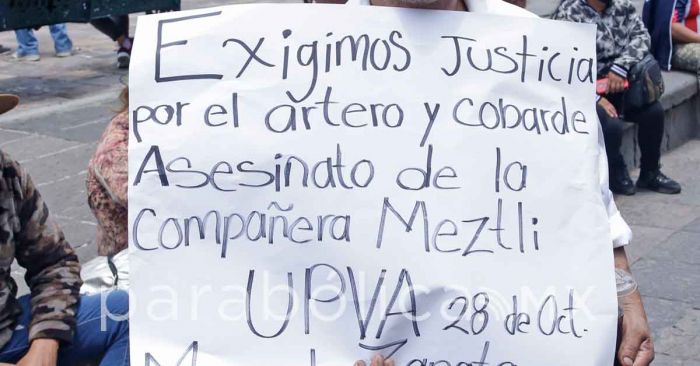 Exigimos Justicia
por el artero y cobarde
Asesinato de la
Compañera Meztli
UPVA 28 de Oct.
Zapata
parabólica.MX